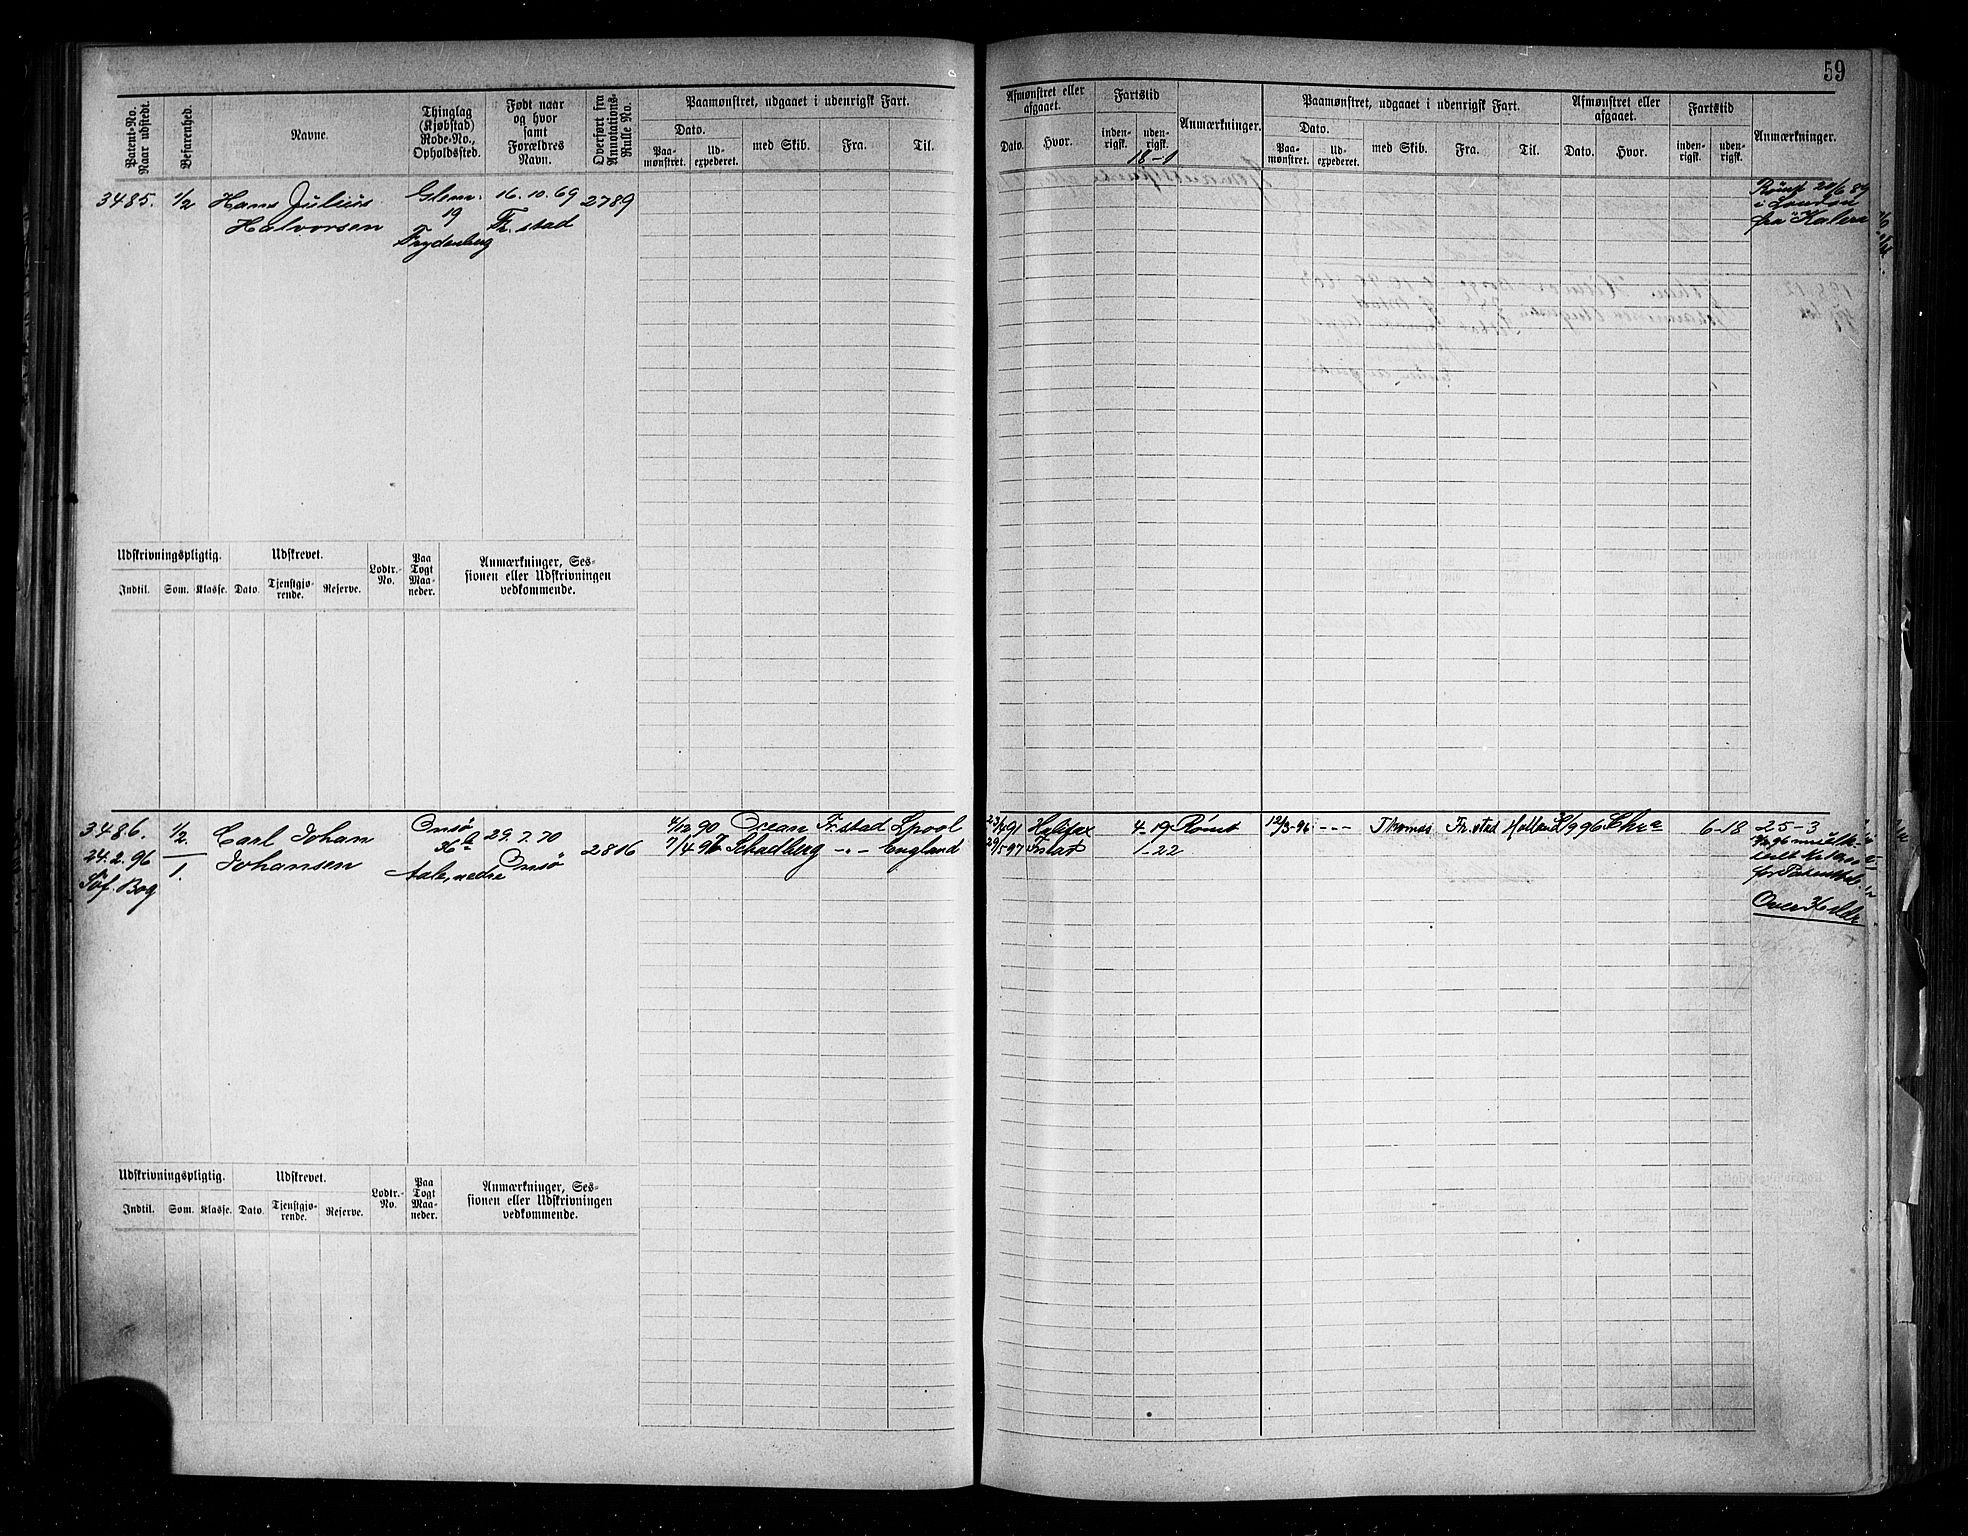 59
Patent-No. Naar udstedt.
Befarenhed.
Navne.
Thinglag (Kjøbstad) Rode-No., Opholdssted.
Født naar og hvor samt Forældres Navn.
Overført fra Annotations-Rulle No.
Paamønstret, udgaaet i udenrigsk Fart.
Dato.
Paamønstret.
Udexpederet.
med Skib.
Fra.
Til.
Afmønstret eller afgaaet.
Dato.
Hvor.
Fartstid
indenrigsk.
udenrigsk.
Anmærkninger.
Paamønstret, udgaaet i udenrigsk Fart.
Dato.
Paamønstret.
Udexpederet.
med Skib.
Fra.
Til.
Afmønstret eller afgaaet.
Dato.
Hvor.
Fartstid
indenrigsk.
udenrigsk.
Anmærkninger.
18-1
3485. 1/2 Hans Julius Glem. 16.10.69 2789
Halvorsen 19 Fr.stad
Frydenberg
Rømt 20/6 89
i London
fra Kalera
Udskrivningspligtig.
Udskrevet.
Lodtr.-No.
Paa Togt Maaneder.
Anmærkninger, Sessionen eller Udskrivningen vedkommende.
Indtil.
Som.
Klasse.
Dato.
Tjenstgjørende.
Reserve.
3486. 1/2. Carl Johan Onsø 29.7.70 2816
24.2.96 1. Johansen 36 b Onsø
Søf. Bog Aale, nedre
4/12 90 Ocean Fr.stad Lpool 23/4 91 Halifax 4-19 Rømt 12/3-96 --- Thomas Fr.stad Holland 96 Chra 6-18 25-3
7/4 97 Schadberg -"- England 29/5 97 Frstad 1-22
Over
Udskrivningspligtig.
Udskrevet.
Lodtr.-No.
Paa Togt Maaneder.
Anmærkninger, Sessionen eller Udskrivningen vedkommende.
Indtil.
Som.
Klasse.
Dato.
Tjenstgjørende.
Reserve.